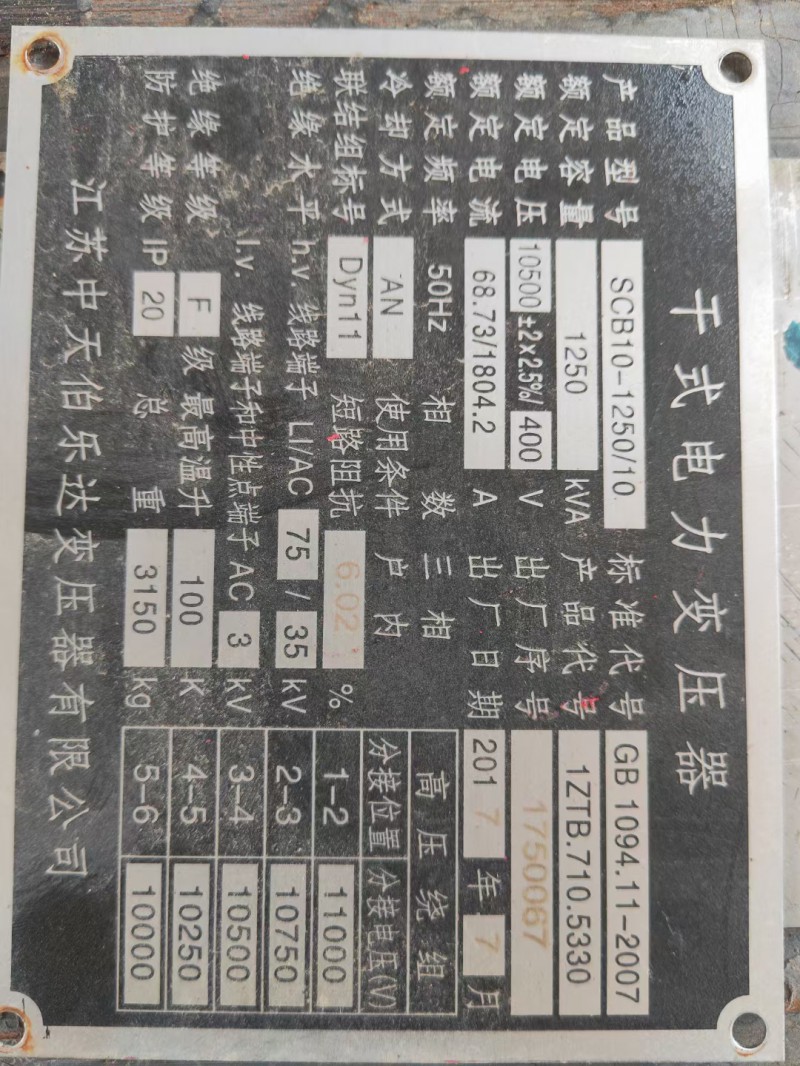 干式电力变压器
产品型号 SCB10-1250/10 标准代号 GB 1094.11-2007
额定容量 1250 kVA 产品代号 1ZTB.710.5330
额定电压 10500±2×2.5%/400 V 出厂序号 1750067
额定电流 68.73/1804.2 A 出厂日期 2017年7月
额定频率 50Hz 相数 三相
冷却方式 AN 使用条件 户内
联结组标号 Dyn11 短路阻抗 6.02 %
绝缘水平 h.v. 线路端子 LI/AC 75 / 35 kV
l.v. 线路端子和中性点端子 AC 3 kV
绝缘等级 F 级 最高温升 100 K
防护等级 IP 20 总重 3150 kg
高压绕组
分接位置 分接电压(V)
1-2 11000
2-3 10750
3-4 10500
4-5 10250
5-6 10000
江苏中天伯乐达变压器有限公司